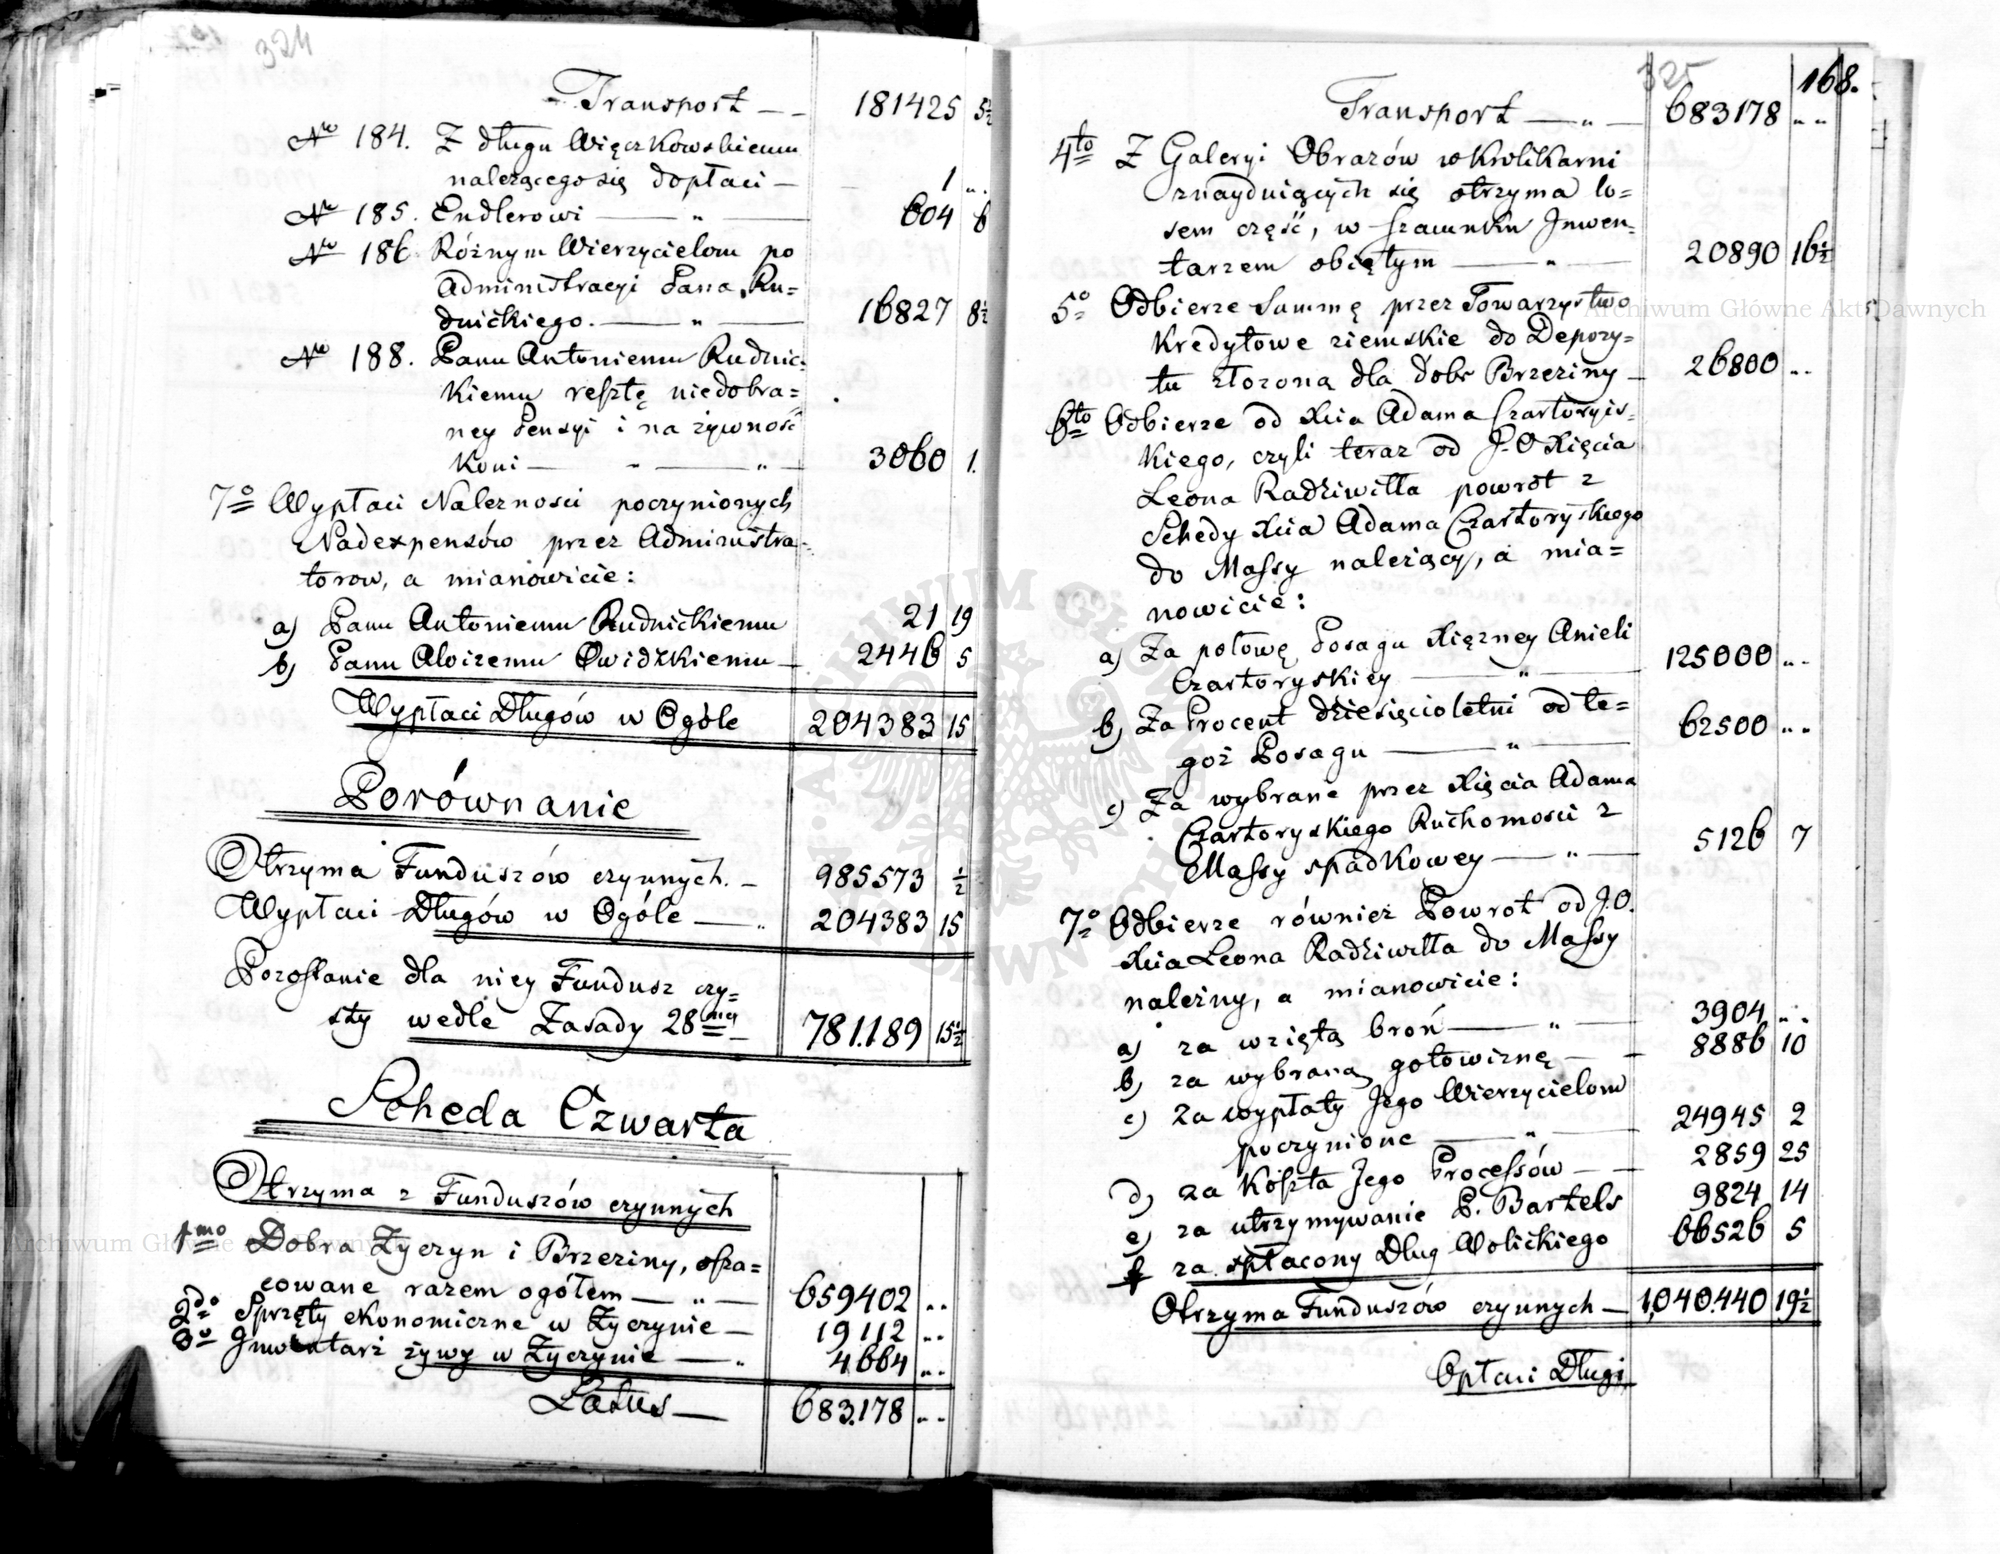 324
Transport — — 181425 5½
No 184. Z długu Więczkowskiemu
należącego się dopłaci — 1 „.
No 185. Endlerowi — „ — 604 6
No 186. Różnym Wierzycielom po
Administracyi Pana Ru=
dnickiego. — „ — 16827 8½
No 188. Panu Antoniemu Rudnic=
kiemu resztę niedobra=
ney Pensyi i na żywność
Koni — „ — „ — 3060 1.
7o Wypłaci Należności poczynionych
Nadexpensów przez Administra=
torow, a mianowicie:
a) Panu Antoniemu Rudnickiemu 21 19
b) Panu Aloizemu Owidzkiemu — 2446 5
Wypłaci Długów w Ogóle 204383 15
Porównanie
Otrzyma Funduszów czynnych. — 985573 ½
Wypłaci Długów w Ogóle — „ 204383 15
Pozostanie dla niey Fundusz czy=
sty wedle Zasady 28mey — 781.189 15½
Scheda Czwarta
Otrzyma z Funduszów czynnych
1mo Dobra Życzyn i Brzeziny, osza=
cowane razem ogółem — „ — 659402 „.
2do Sprzęty ekonomiczne w Życzynie — 19112 „.
3o Inwentarż żywy w Życzynie — „ 4664 „.
Latus — 683.178 „.
325
168.
Transport — „ — 683178 „ „
4to Z Galeryi Obrazów w Krolikarni
znayduiących się otrzyma lo=
sem część, w szacunku Inwen=
tarzem obiętym — „ — 20890 16½
5o Odbierze Summę przez Towarzystwo
Kredytowe ziemskie do Depozy=
tu złozona dla dobr Brzeziny — 26800 „.
6to Odbierze od Xcia Adama Czartoryis=
kiego, czyli teraz od J.O Xięcia
Leona Radziwiłła powrót z
Schedy Xcia Adama Czartoryskiego
do Massy należący, a mia=
nowicie:
a) Za połowę Posagu Xiężney Anieli
Czartoryskiey — „ — 125000 „.
b) Za Procent dziesięcioletni od te=
goż Posagu — „ — 62500 „.
c) Za wybrane przez Xięcia Adama
Czartoryskiego Ruchomosci z
Massy spadkowey — „ — 5126 7
7o Odbierze równiez Powrot od J.O.
Xcia Leona Radziwiłła do Massy
należny, a mianowicie:
a) za wziętą broń — „ — 3904 „.
b) za wybraną gotowiznę — — 8886 10
c) za wypłaty Jego Wierzycielom
poczynione — „ — 24945 2
d) za Koszta Jego Processów — — 2859 25
e) za utrzymywanie P. Bartels 9824 14
f za spłacony Dług Wolickiego 66526 5
Otrzyma Funduszów czynnych — 1,040.440 19½
Opłaci Długi
Archiwum Główne Akt Dawnych
Archiwum Główne Akt Dawnych
ARCHIWUM GŁÓWNE AKT DAWNYCH